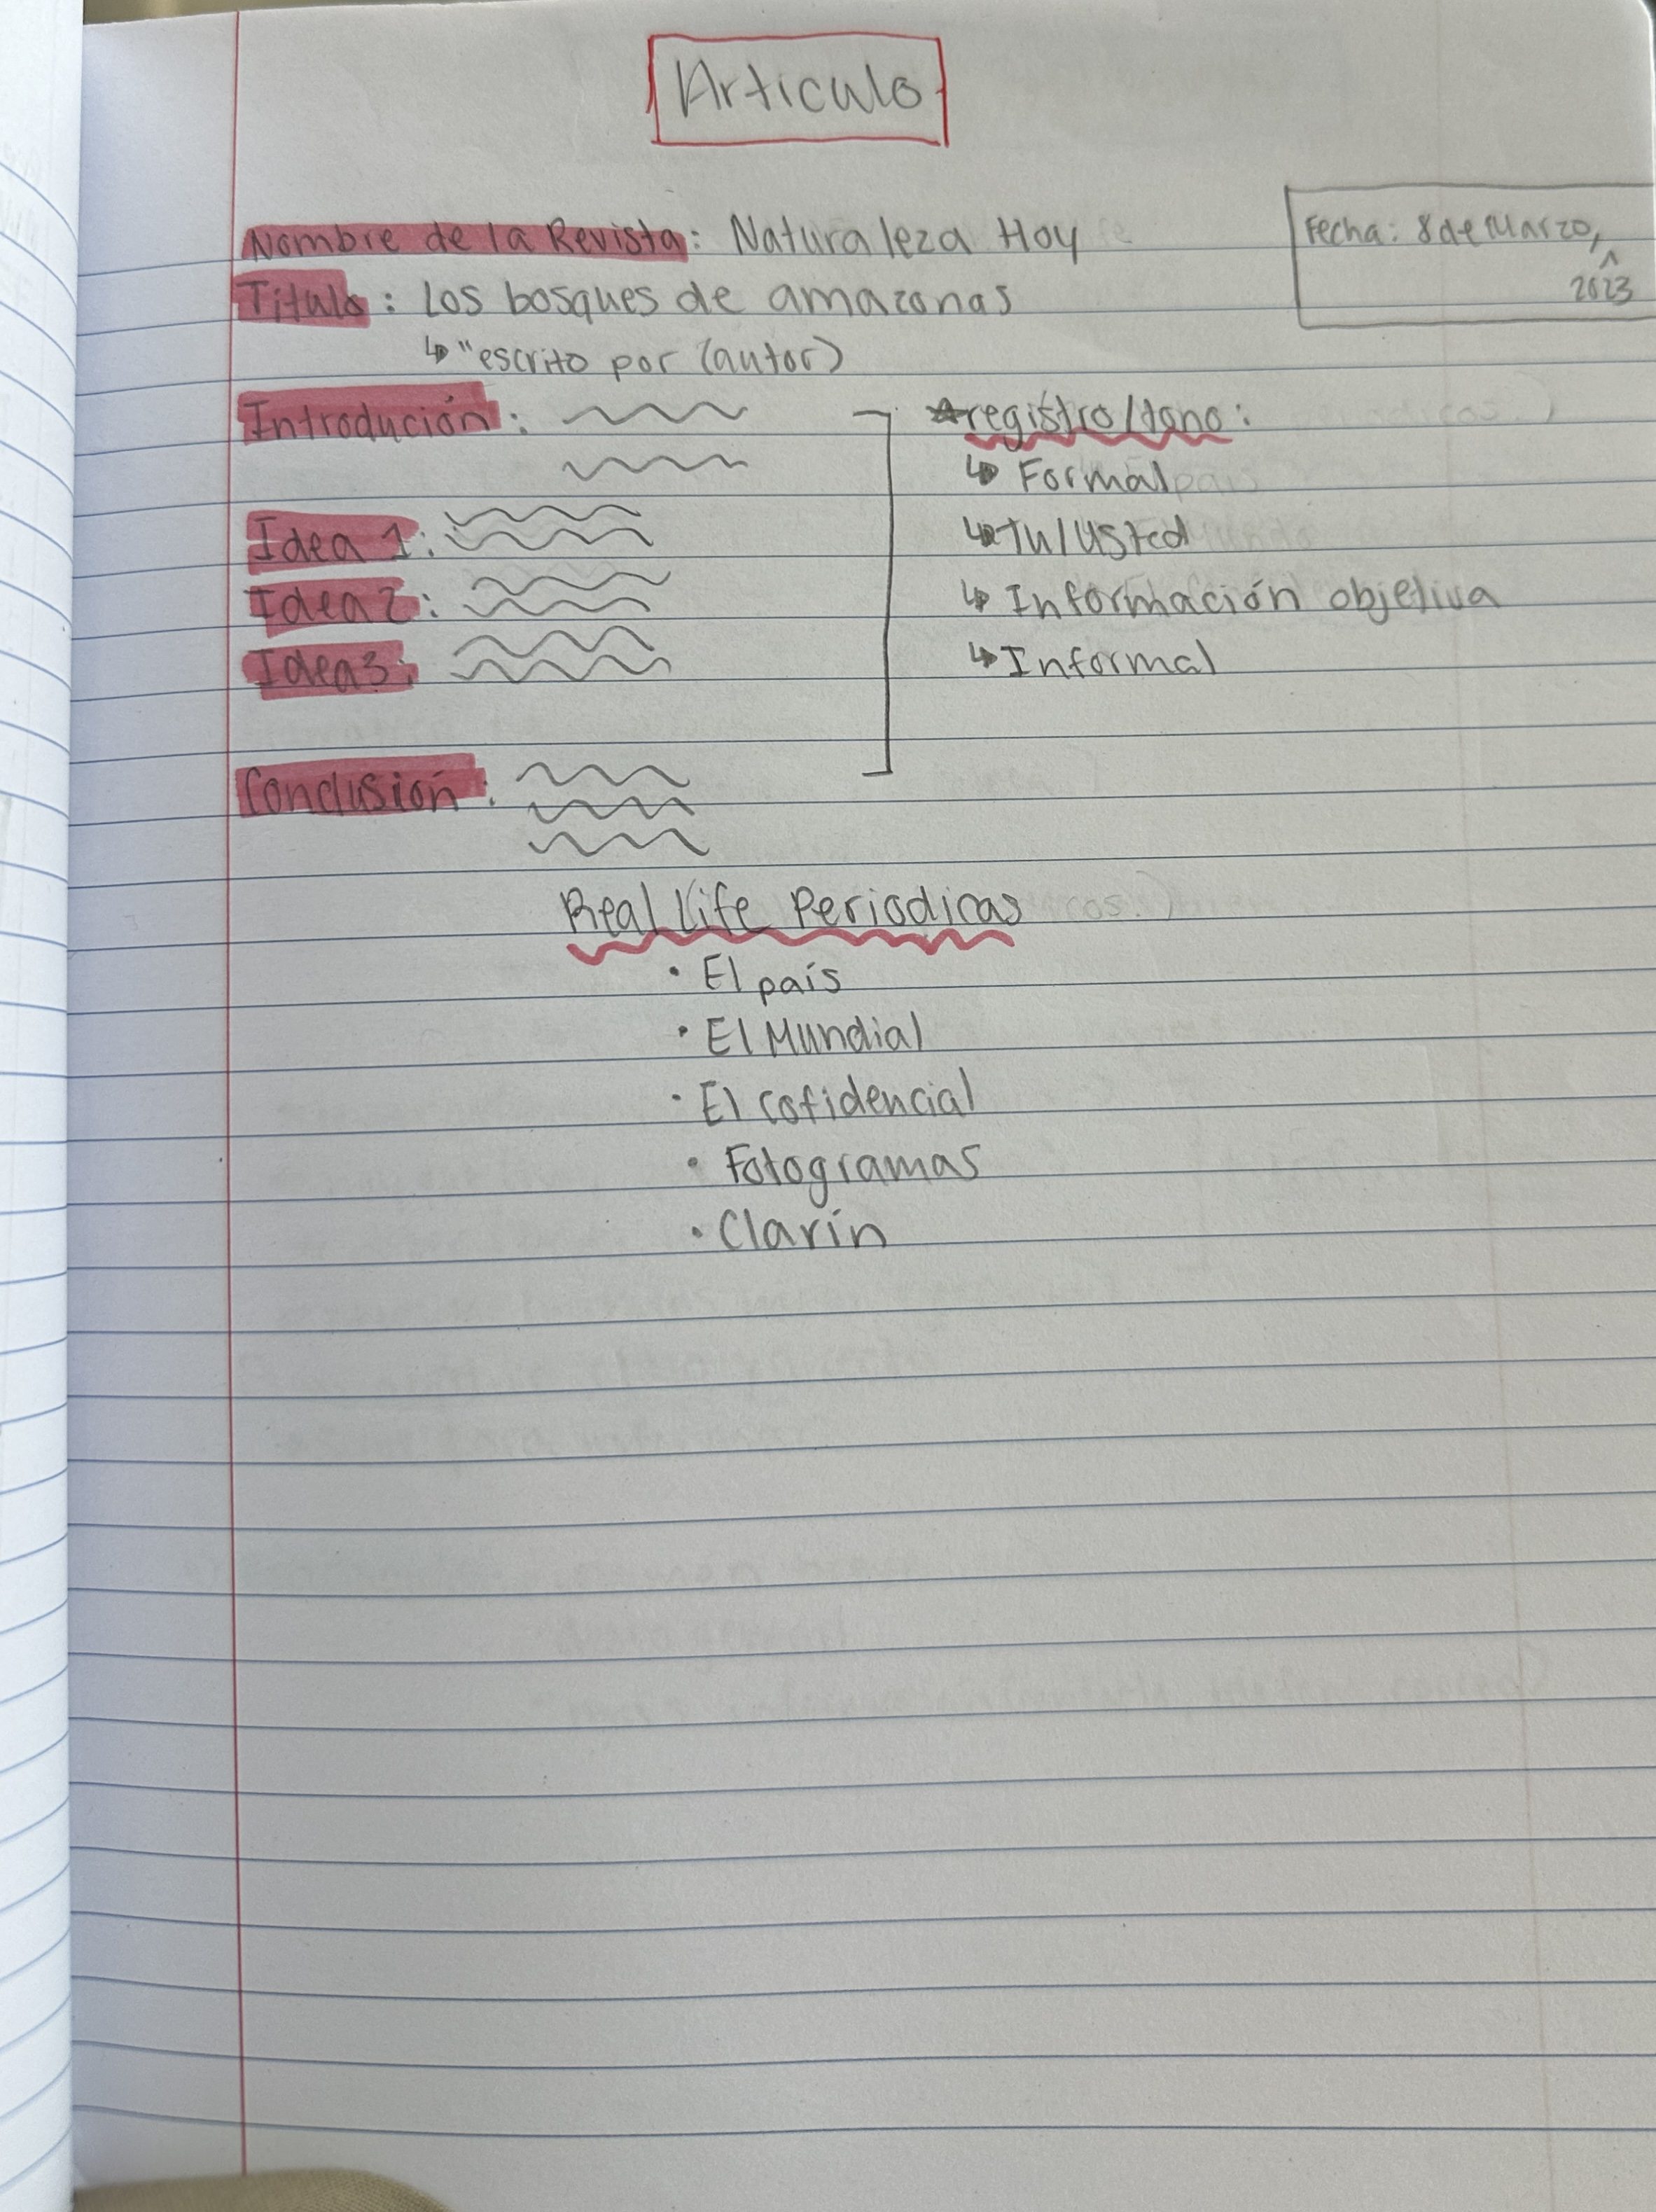 Articulo
Fecha: 8 de Marzo,
^
2023
Nombre de la Revista: Naturaleza Hoy
Titulo: Los bosques de amazonas
↳ "escrito por (autor)
Introdución:
Idea 1:
Idea 2:
Idea 3:
Conclusión:
☆registro/tono:
↳ Formal
↳ Tu/Usted
↳ Información objetiva
↳ Informal
Real Life Periodicas
• El país
• El Mundial
• El cofidencial
• Fotogramas
• Clarín